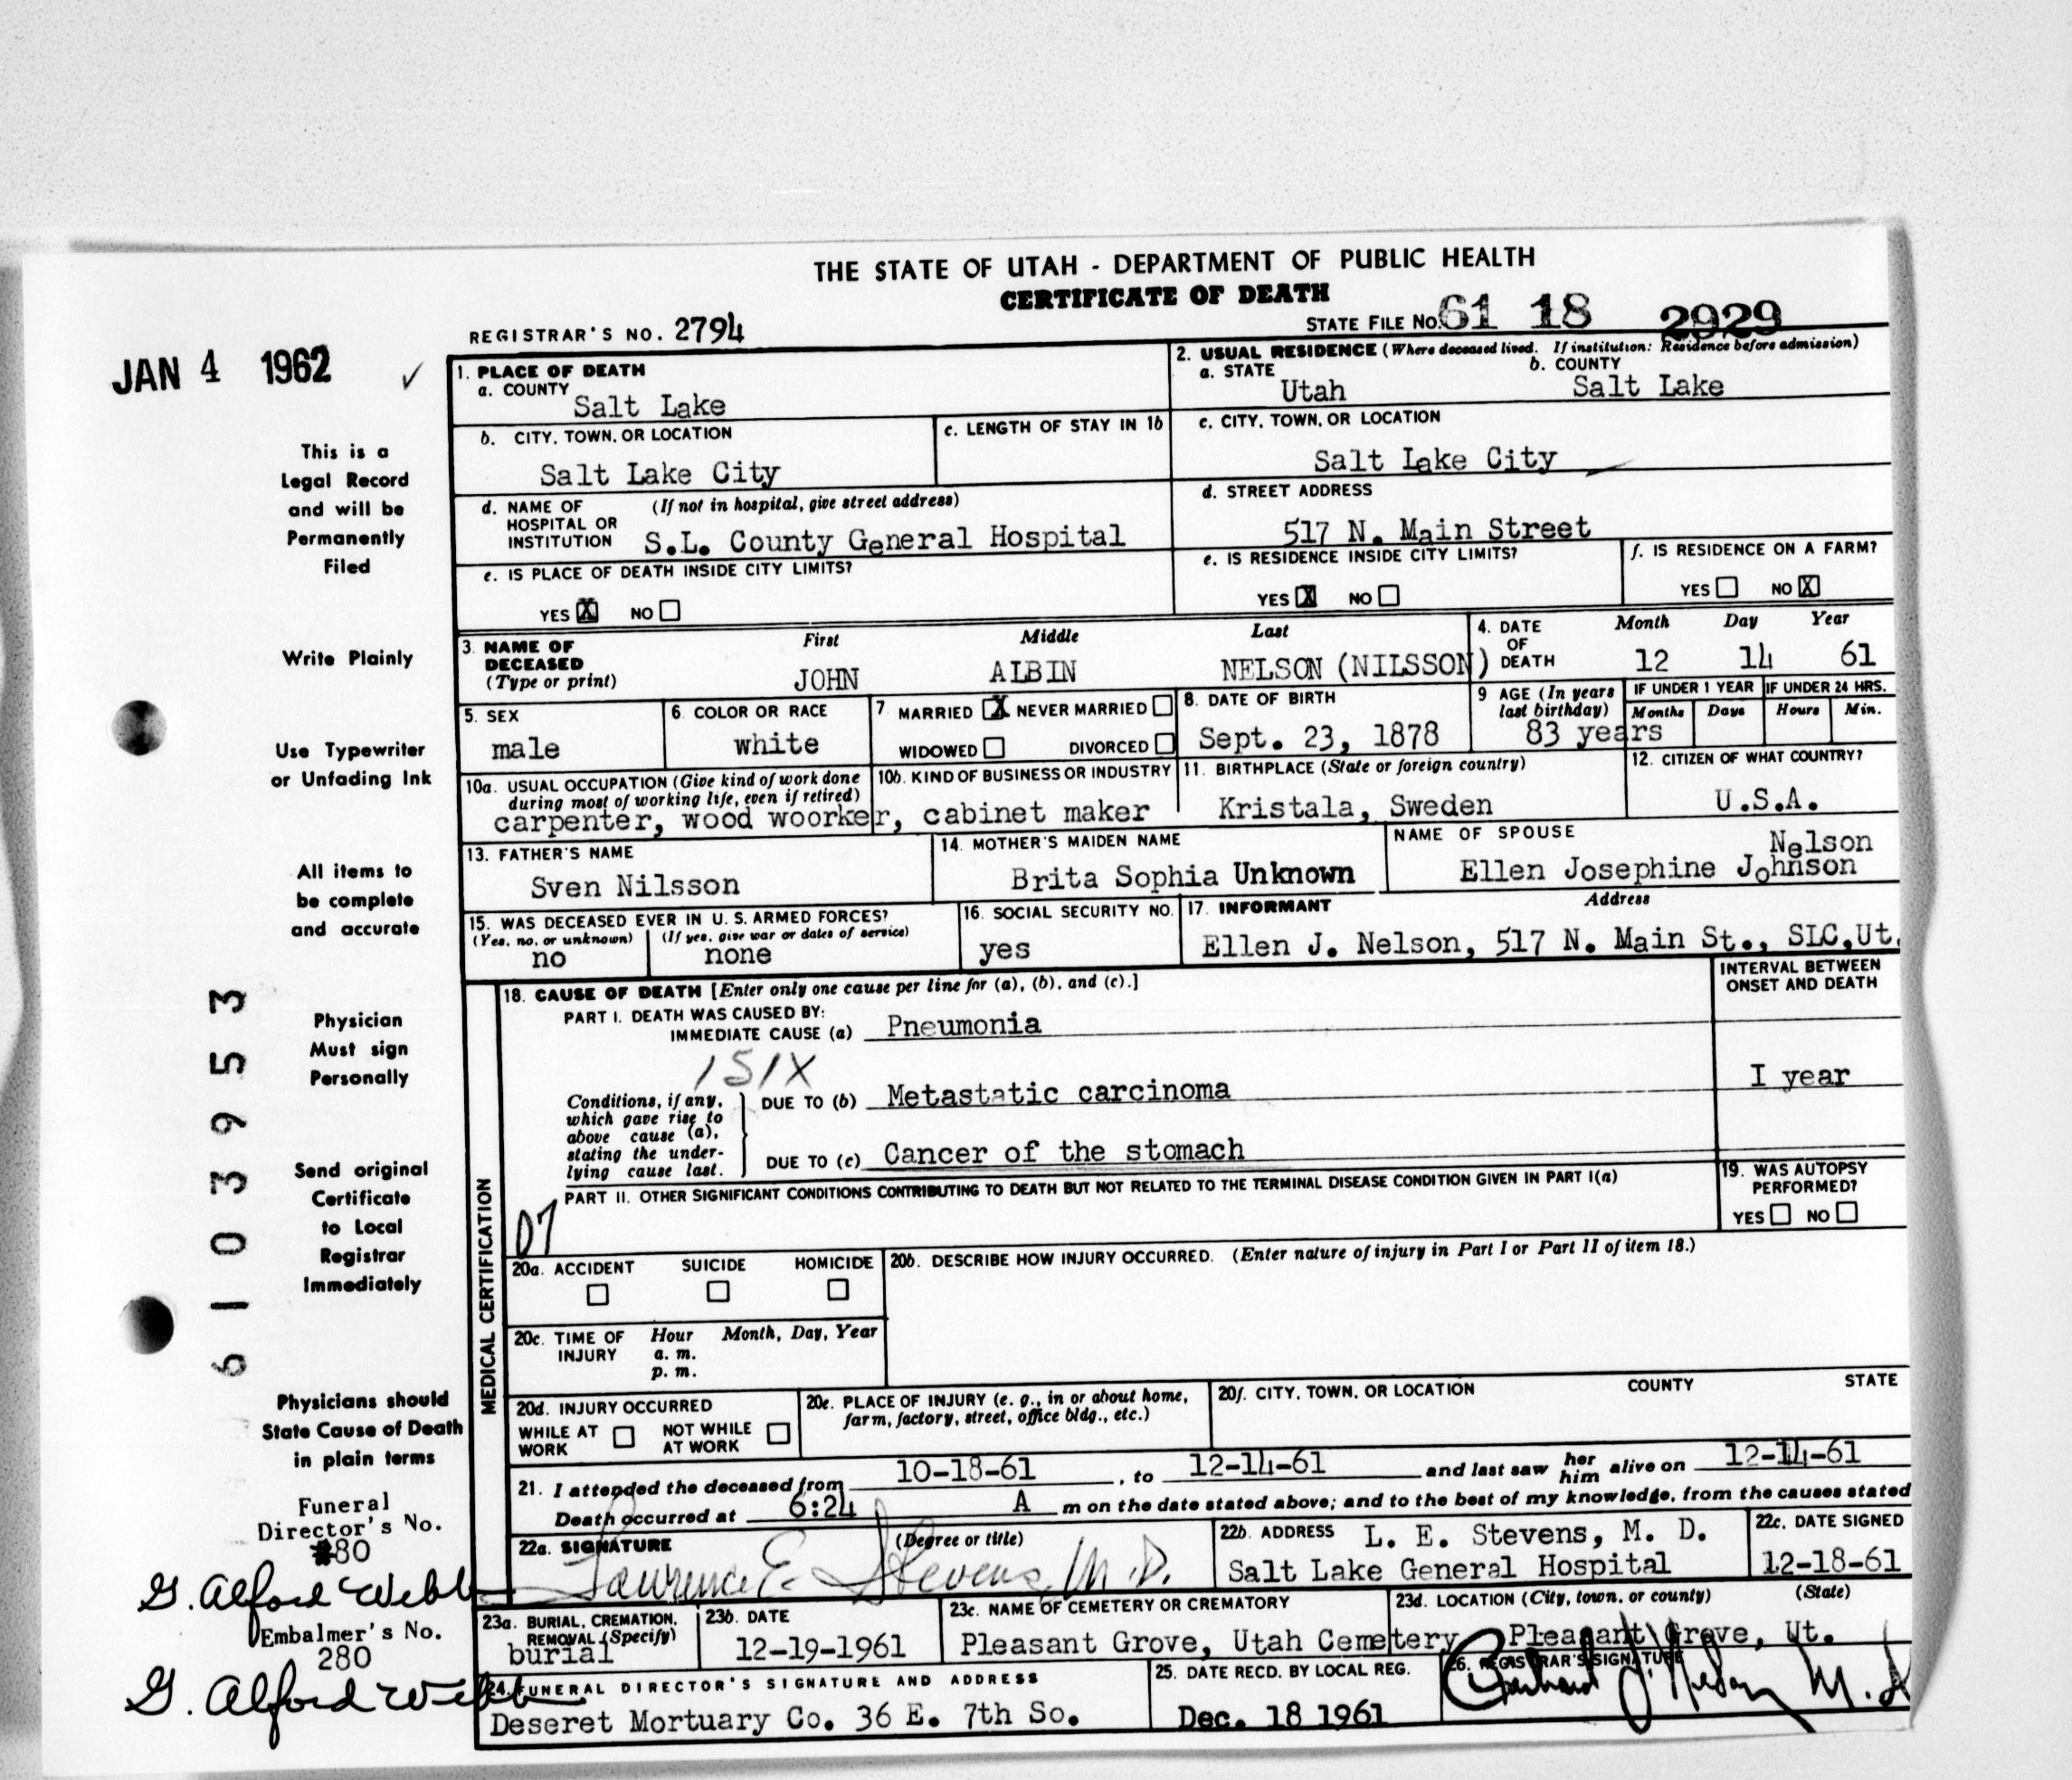 THE STATE OF UTAH - DEPARTMENT OF PUBLIC HEALTH
CERTIFICATE OF DEATH
REGISTRAR'S NO. 2794
STATE FILE NO. 61 18 2929
JAN 4 1962 ✓
This is a
Legal Record
and will be
Permanently
Filed
Write Plainly
Use Typewriter
or Unfading Ink
All items to
be complete
and accurate
Physician
Must sign
Personally
Send original
Certificate
to Local
Registrar
Immediately
Physicians should
State Cause of Death
in plain terms
Funeral
Director's No.
#80
G. Alford Webb
Embalmer's No.
280
G. Alford Webb
6103953
1. PLACE OF DEATH
a. COUNTY
Salt Lake
2. USUAL RESIDENCE (Where deceased lived. If institution: Residence before admission)
a. STATE b. COUNTY
Utah Salt Lake
b. CITY, TOWN, OR LOCATION
Salt Lake City
c. LENGTH OF STAY IN 1b
c. CITY, TOWN, OR LOCATION
Salt Lake City
d. NAME OF (If not in hospital, give street address)
HOSPITAL OR
INSTITUTION S.L. County General Hospital
d. STREET ADDRESS
517 N. Main Street
e. IS PLACE OF DEATH INSIDE CITY LIMITS?
YES X NO
e. IS RESIDENCE INSIDE CITY LIMITS?
YES X NO
f. IS RESIDENCE ON A FARM?
YES NO X
3. NAME OF
DECEASED
(Type or print)
First Middle Last
JOHN ALBIN NELSON (NILSSON)
4. DATE
OF
DEATH
Month Day Year
12 14 61
5. SEX
male
6. COLOR OR RACE
white
7 MARRIED X NEVER MARRIED
WIDOWED DIVORCED
8. DATE OF BIRTH
Sept. 23, 1878
9 AGE (In years
last birthday)
83 years
IF UNDER 1 YEAR IF UNDER 24 HRS.
Months Days Hours Min.
10a. USUAL OCCUPATION (Give kind of work done
during most of working life, even if retired)
10b. KIND OF BUSINESS OR INDUSTRY
carpenter, wood woorker, cabinet maker
11. BIRTHPLACE (State or foreign country)
Kristala, Sweden
12. CITIZEN OF WHAT COUNTRY?
U.S.A.
13. FATHER'S NAME
Sven Nilsson
14. MOTHER'S MAIDEN NAME
Brita Sophia Unknown
NAME OF SPOUSE
Nelson
Ellen Josephine Johnson
15. WAS DECEASED EVER IN U. S. ARMED FORCES?
(Yes, no, or unknown) (If yes, give war or dates of service)
no none
16. SOCIAL SECURITY NO.
yes
17. INFORMANT Address
Ellen J. Nelson, 517 N. Main St., SLC,Ut.
MEDICAL CERTIFICATION
18. CAUSE OF DEATH [Enter only one cause per line for (a), (b), and (c).]
INTERVAL BETWEEN
ONSET AND DEATH
PART I. DEATH WAS CAUSED BY:
IMMEDIATE CAUSE (a) Pneumonia
151X
I year
Conditions, if any,
which gave rise to
above cause (a),
stating the under-
lying cause last.
DUE TO (b) Metastatic carcinoma
DUE TO (c) Cancer of the stomach
PART II. OTHER SIGNIFICANT CONDITIONS CONTRIBUTING TO DEATH BUT NOT RELATED TO THE TERMINAL DISEASE CONDITION GIVEN IN PART I(a)
07
19. WAS AUTOPSY
PERFORMED?
YES NO
20a. ACCIDENT SUICIDE HOMICIDE
20b. DESCRIBE HOW INJURY OCCURRED. (Enter nature of injury in Part I or Part II of item 18.)
20c. TIME OF Hour Month, Day, Year
INJURY a. m.
p. m.
20d. INJURY OCCURRED
WHILE AT NOT WHILE
WORK AT WORK
20e. PLACE OF INJURY (e. g., in or about home,
farm, factory, street, office bldg., etc.)
20f. CITY, TOWN, OR LOCATION COUNTY STATE
21. I attended the deceased from 10-18-61, to 12-14-61 and last saw her him alive on 12-14-61
Death occurred at 6:24 A m on the date stated above; and to the best of my knowledge, from the causes stated
22a. SIGNATURE (Degree or title)
Lawrence E. Stevens, M.D.
22b. ADDRESS L. E. Stevens, M. D.
Salt Lake General Hospital
22c. DATE SIGNED
12-18-61
23a. BURIAL, CREMATION,
REMOVAL (Specify)
burial
23b. DATE
12-19-1961
23c. NAME OF CEMETERY OR CREMATORY
Pleasant Grove, Utah Cemetery
23d. LOCATION (City, town, or county) (State)
Pleasant Grove, Ut.
24. FUNERAL DIRECTOR'S SIGNATURE AND ADDRESS
Deseret Mortuary Co. 36 E. 7th So.
25. DATE RECD. BY LOCAL REG.
Dec. 18 1961
26. REGISTRAR'S SIGNATURE
M.D.